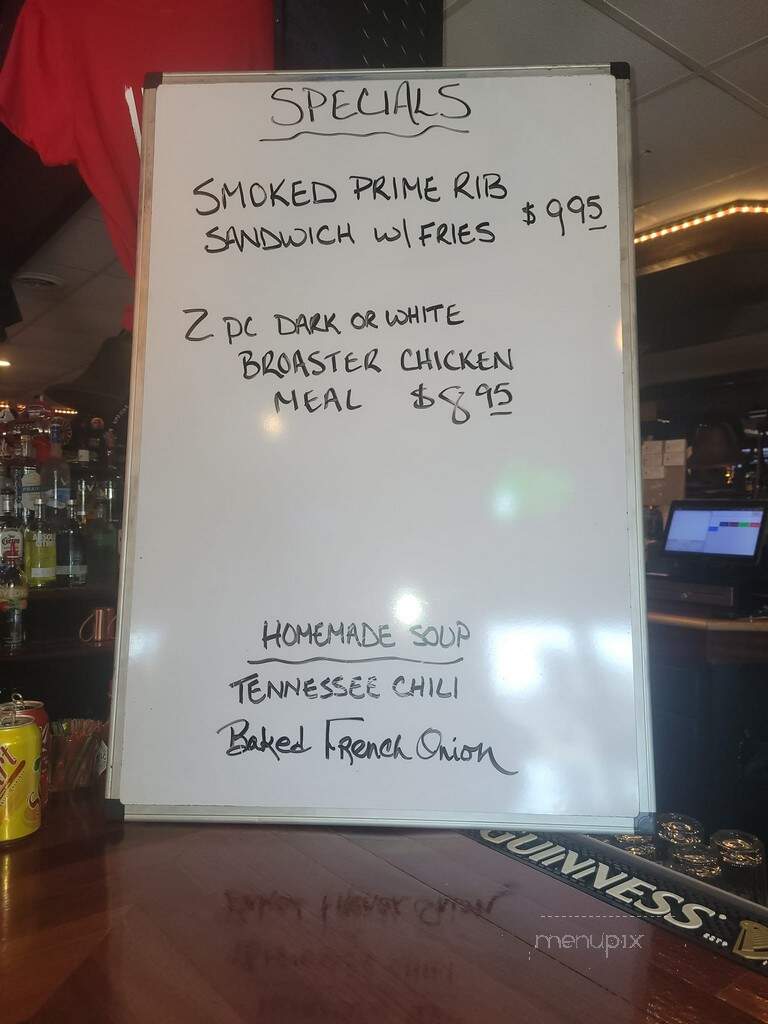 SPECIALS
SMOKED PRIME RIB
SANDWICH W/ FRIES $9 95
2 PC DARK OR WHITE
BROASTER CHICKEN
MEAL $8 95
HOMEMADE SOUP
TENNESSEE CHILI
Baked French Onion
GUINNESS
menupix